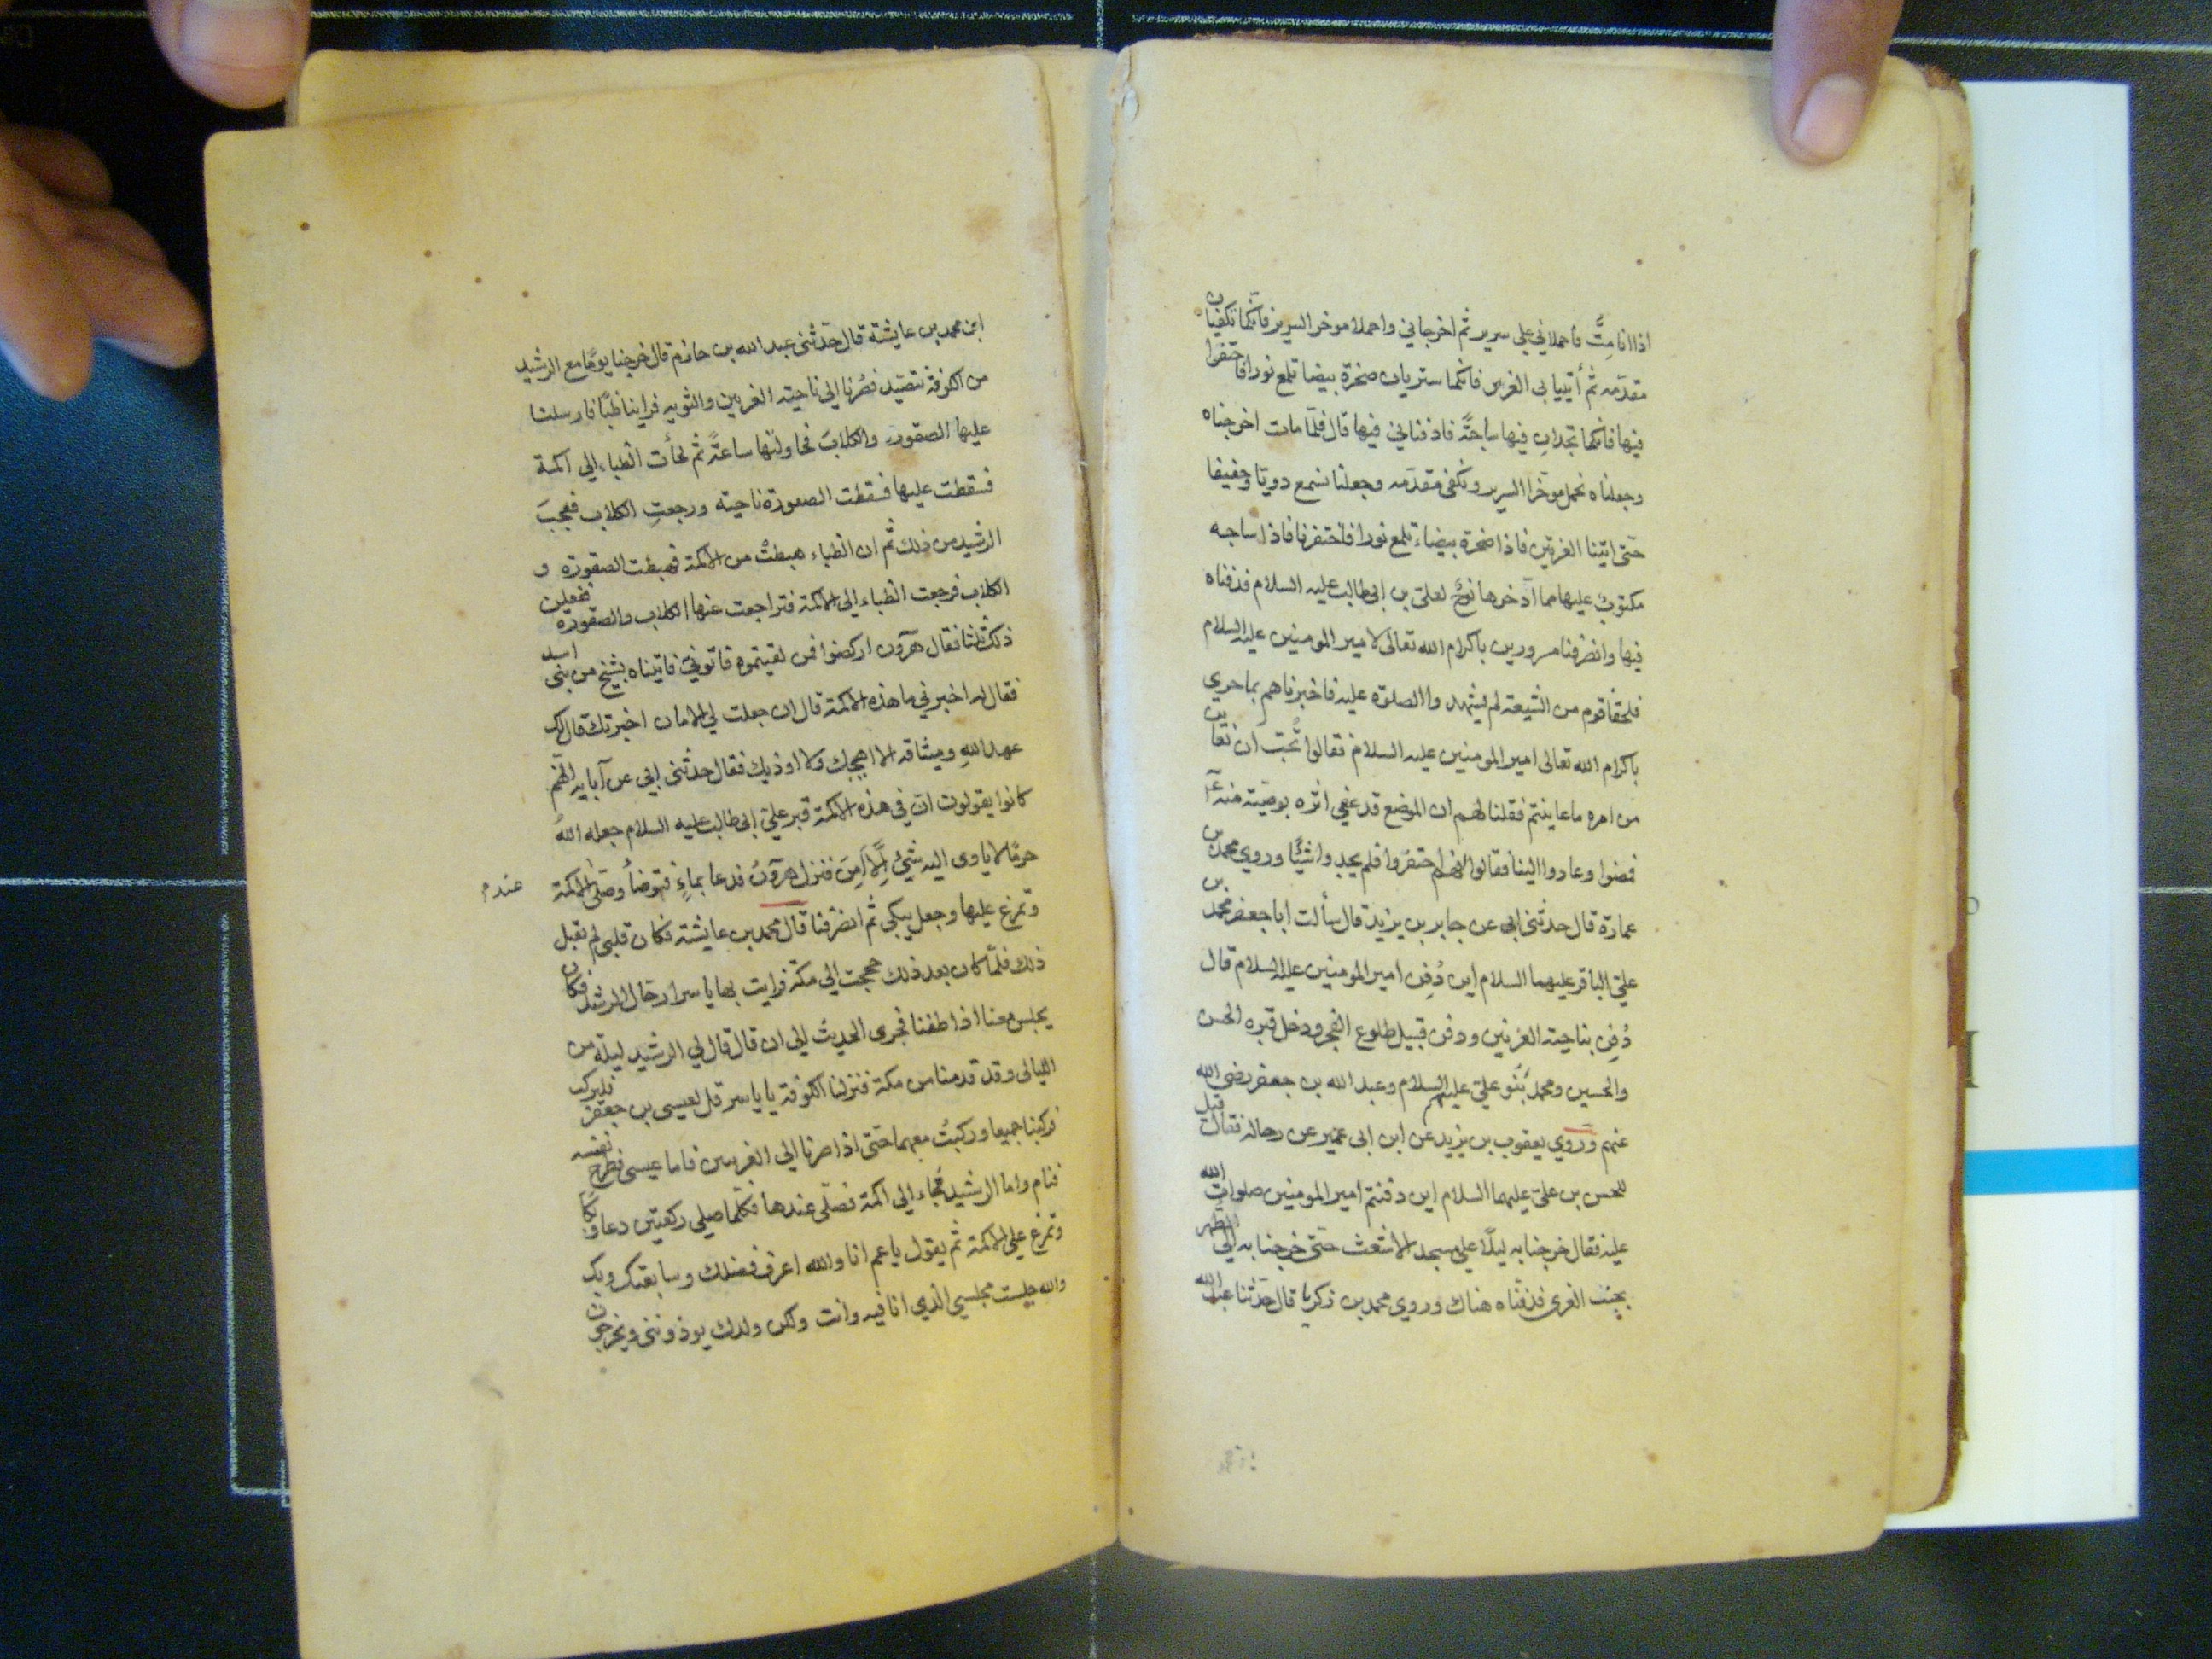 اذا انا متّ فاحملاني علي سرير ثم اخرجاني واحملا موخر السرير فانّكما تكفيان
مقدّمه ثم أتيا بي الغرىن فانكما ستريان صخرة بيضا تلمع نورا فاحتفرا
فيها فانكما تجدان فيها ساجةً فادفناني فيها قال فلمّا مات اخرجناه
وجعلناه نحمل موخّر السرير ونكفى مقدّمه وجعلنا نسمع دويّا وحفيفا
حتى اتينا الغريّين فاذا صخرة بيضاء تلمع نورا فاحتفرنا فاذا ساجه
مكتوب عليها مما ادّخرها نوحٌ لعليّ بن ابي طالب عليه السلام فدفناه
فيها وانصرفنا مسرورين باكرام الله تعالى لامير المومنين عليه السلام
فلحقنا قوم من الشيعة لم يشهدوا الصلوة عليه فاخبرناهم بما جرى
باكرام الله تعالى امير المومنين عليه السلام فقالوا نُحبّ ان نعاين
من امره ما عاينتم فقلنا لهم ان الموضع قد عفي اثره بوصيّته منه ع
فمضوا وعادوا الينا فقالوا انهم احتفروا فلم يجدوا شيًا وروي محمد بن
عمارة قال حدثنى ابى عن جابر بن يزيد قال سألت ابا جعفر محمد بن
عليّ الباقر عليهما السلام اين دُفِن امير المومنين عليه السلام قال
دُفِن بناحية الغريين ودفن قبيل طلوع الفجر ودخل قبره الحسن
والحسين ومحمد بَنُو عليّ عليهم السلام وعبد الله بن جعفر رضي الله
عنهم وَروي يعقوب بن يزيد عن ابن ابى عمير عن رجاله فقال قيل
للحسن بن عليّ عليهما السلام اين دفنتم امير المومنين صلوات الله
عليه فقال خرجنا به ليلًا علي مسجد الاشعث حتى خرجنا به إلي الظهر
بجنب الغرى فدفنّاه هناك وروي محمد بن زكريا قال حدّثنا عبد الله
ابن محمد بن عايشة قال حدّثنى عبد الله بن حازم قال خرجنا يومًا مع الرشيد
من الكوفة نتصيّد فصُرنا الي ناحية الغريين والثويه فراينا ظباً فارسلنا
عليها الصقور والكلابَ فحاولتها ساعةً ثم لجأت الظباء الي اكمة
فسقطت عليها فسقطت الصقورة ناحية ورجعتِ الكلاب فعجبَ
الرشيد من ذلك ثم ان الظباء هبطتْ من الاكمة فهبطت الصقورة و
الكلاب فرجعت الظباء الى الاكمة فتراجعت عنها الكلاب والصقورة ففعلن
ذلك ثلثا فقال هرون اركضوا فمن لقيتموه فاتوني فاتيناه بشيخ من بنى اسد
فقال له اخبرني ما هذه الاكمة قال ان جعلت لي الامان اخبرتك قال لك
عهد اللهِ وميثاقه الا اهيجك ولا اوذيك فقال حدثنى ابى عن آبايه انّهم
كانوا يقولون انّ في هذه الاكمة قبر عليّ ابى طالب عليه السلام جعله اللهُ
حرمًا لا ياوى اليه شيئ اِلّا اَمِنَ فنزل هرونُ فدعا بماءٍ فتوضأ وصَلّى الاكمة
عندم
وتمرغ عليها وجعل يبكى ثم انصرفنا قال محمد بن عايشة فكان قلبى لم يقبل
ذلك فلمّا كان بعد ذلك حججت الي مكّة فرايت بها ياسرا رحال الرشيد فكان
يجلس معنا اذا طفنا فجرى الحديث الى ان قال قال لي الرشيد ليلة من
الليالى وقد قدمنا من مكة فنزلنا الكوفة يا ياسر قل لعيسى بن جعفر فليركب
فركبنا جميعا وركبتُ معهما حتى اذا صرنا الي الغريين فاما عيسى فطرح نفسه
فنام واما الرشيد فجاء الي اكمة فصلّى عندها فكلّما صلي ركعتين دعا وبكا
وتمرغ علي الاكمة ثم يقول يا عم انا والله اعرف فضلك وسابقتك وبك
والله جلست مجلسي الذي انا فيه وانت ولكن ولدك يوذوننى ويخرجون